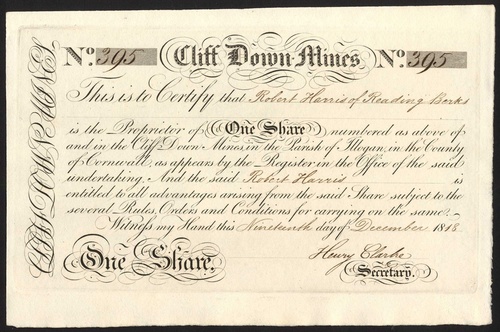 No. 395 Cliff Down Mines, No. 395
This is to Certify that Robert Harris of Reading Berks
is the Proprietor of One Share numbered as above of
and in the Cliff Down Mines in the Parish of Illogan, in the County
of Cornwall, as appears by the Register in the Office of the said
undertaking. And the said Robert Harris is
entitled to all advantages arising from the said Share subject to the
several Rules, Orders and Conditions for carrying on the same.
Witness my Hand this Nineteenth day of December 1818
Henry Clarke
One Share. Secretary.
CLIFF DOWN MINES